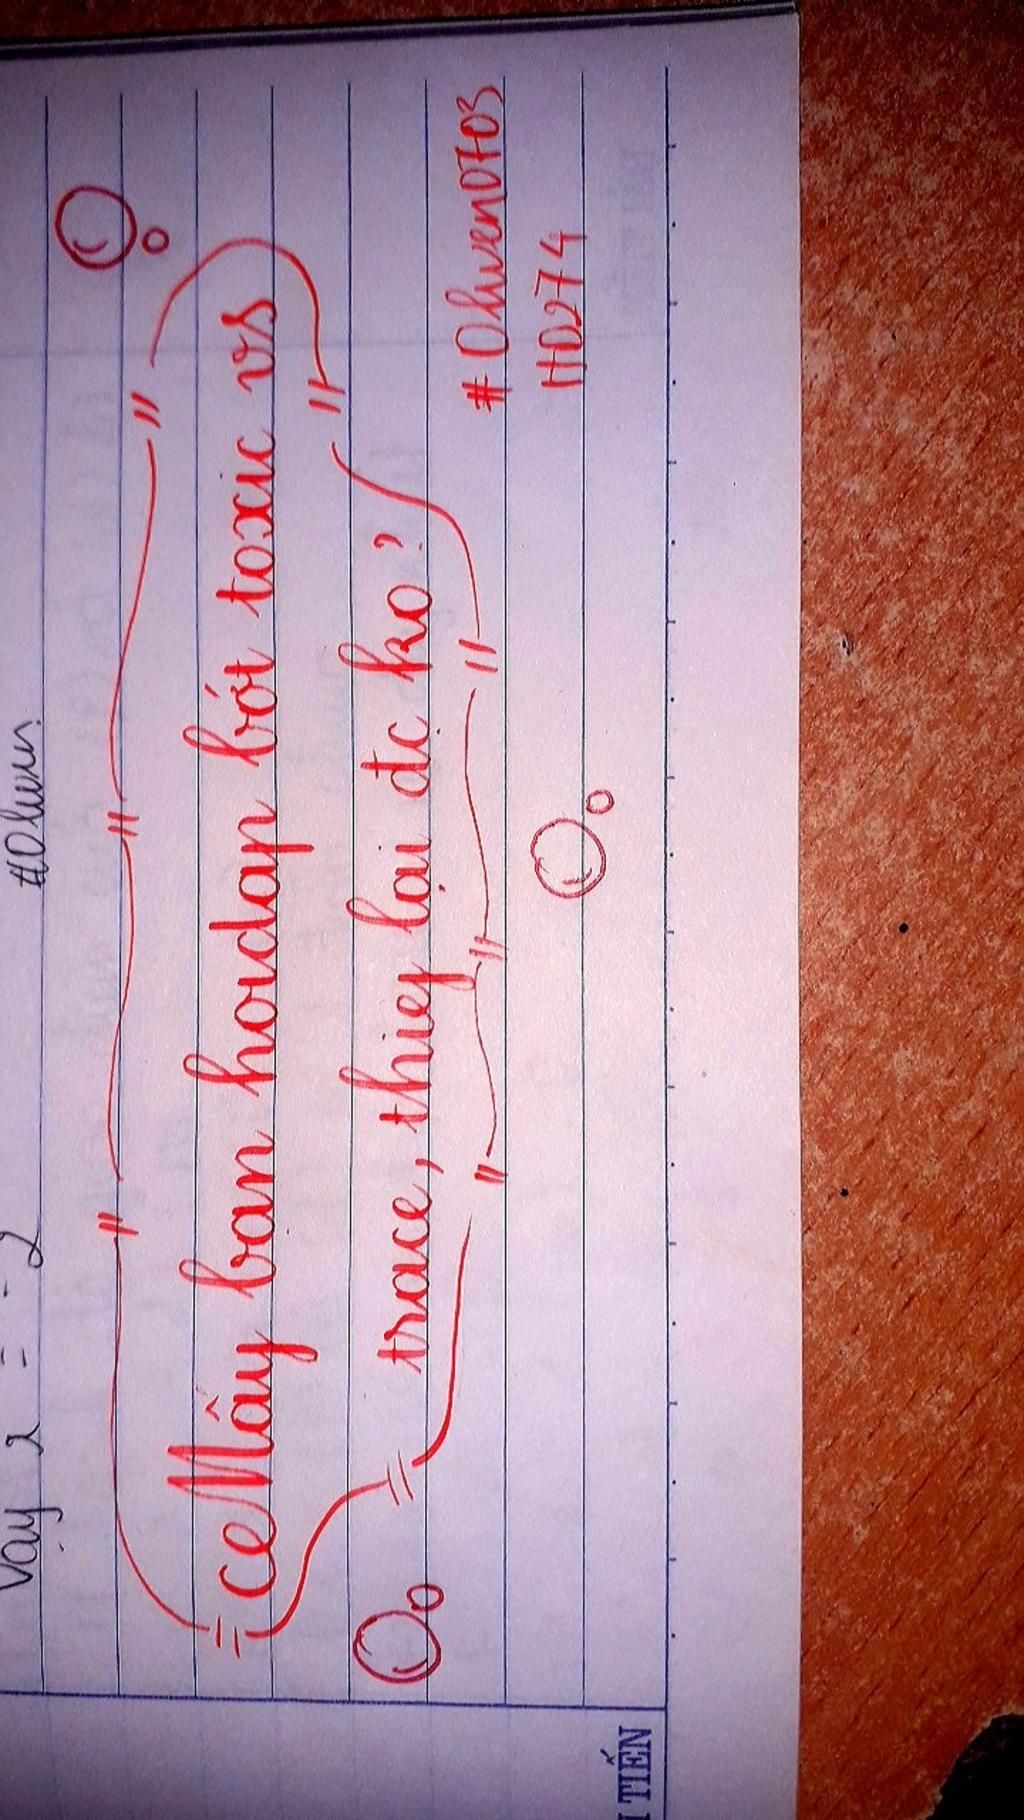 Vậy
#Olwen
ceMấy bạn hoidap bớt toxic vs
trace, thiey lại đc ko?
#Olwen0703
HD274
TIẾN